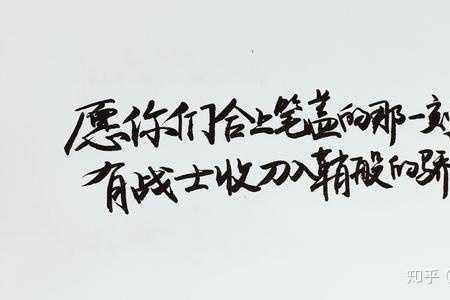 愿你们合上笔盖的那一刻
有战士收刀入鞘般的骄
知乎